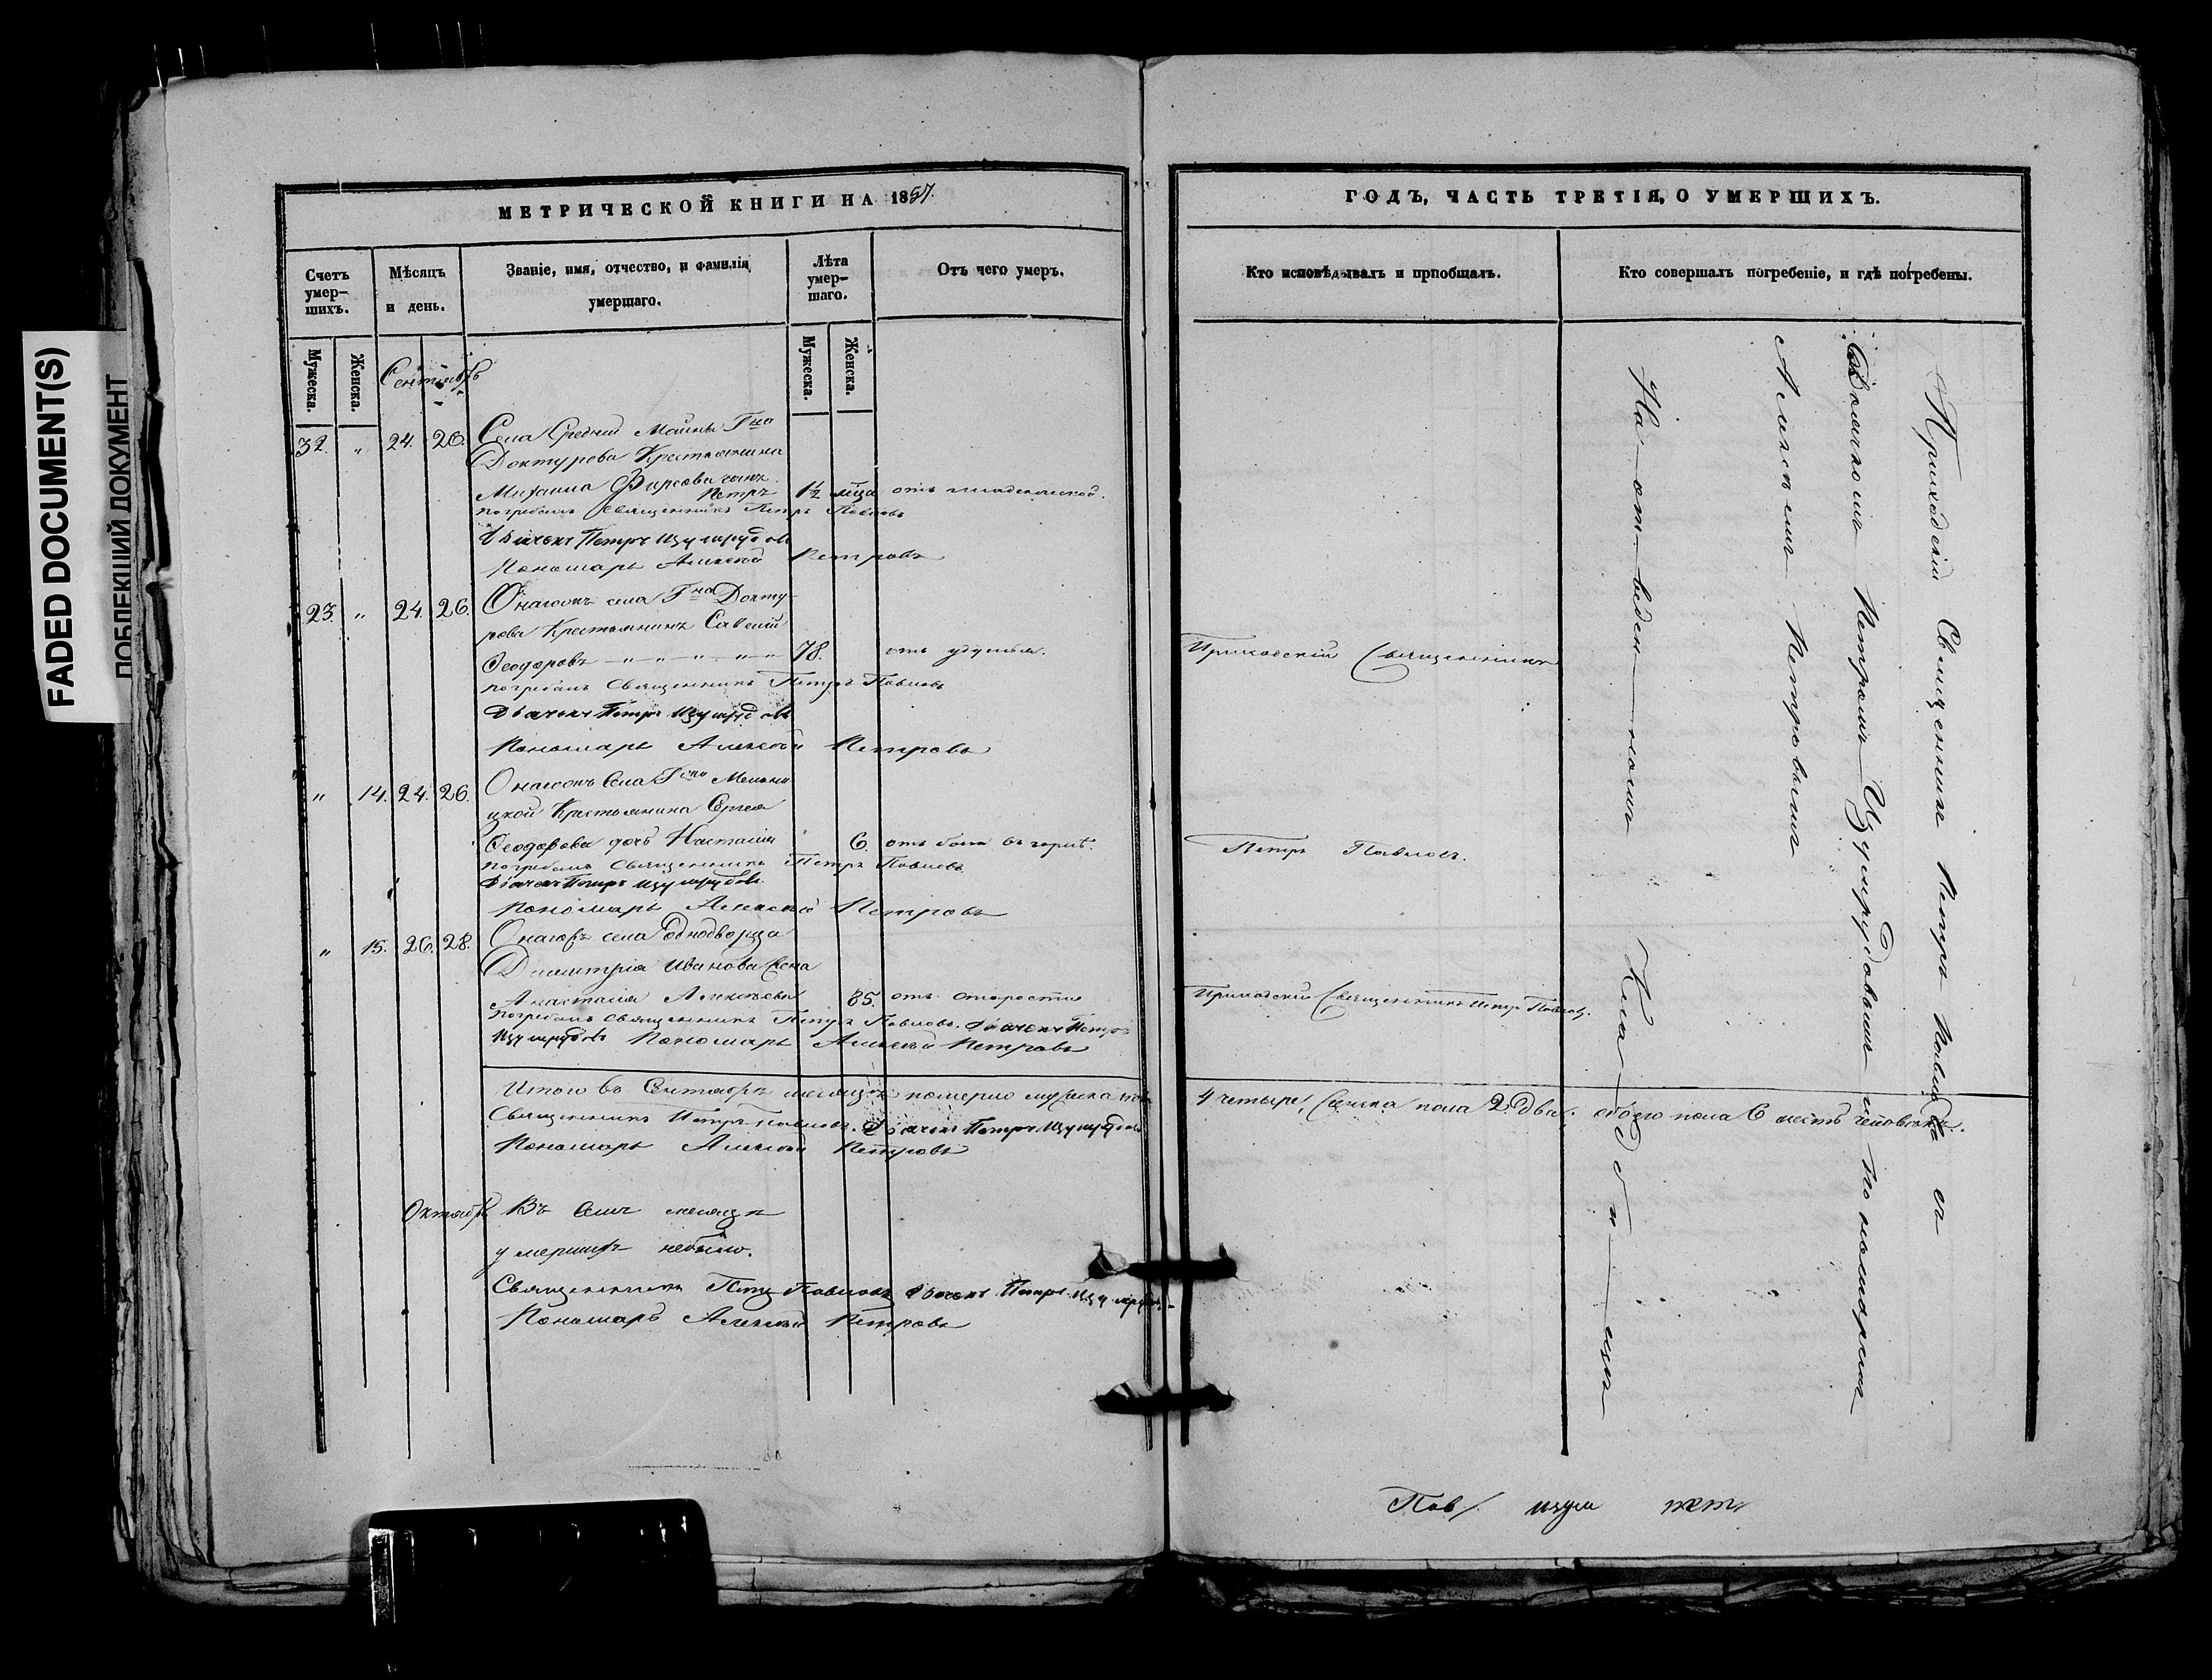 FADED DOCUMENT(S)
ПОБЛЕКШИЙ ДОКУМЕНТ
МЕТРИЧЕСКОЙ КНИГИ НА 1857.
Счетъ умер-шихъ.
Мѣсяцъ и день.
Званіе, имя, отчество, и фамилія умершаго.
Лѣта умер-шаго.
Отъ чего умеръ.
Мужеска. Женска.
Мужеска. Женска.
Сентябрь
32. " 24. 26. Села Средній Майны Гна
Доктурова Крестьянина
Михаила Фирсова сынъ
Петръ 1½ мѣца отъ младенческой.
погребалъ Священникъ Петръ Павловъ
Дьячекъ Петръ Изумрудовъ
Пономарь Алексѣй Петровъ
23. " 24. 26. Онагожъ села Гна Докту-
рова Крестьянинъ Савелій
Ѳеодоровъ 78. отъ удушья.
погребалъ Священникъ Петръ Павловъ
Дьячекъ Петръ Изумрудовъ
Пономарь Алексѣй Петровъ
" 14. 24. 26. Онагожъ Села Гжи
цкой Крестьянина Сергея
Ѳеодорова дочь Настасія 6. отъ боли въ горлѣ.
погребалъ Священникъ Петръ Павловъ
Дьячекъ Петръ Изумрудовъ.
Пономарь Алексѣй Петровъ
" 15. 26. 28. Онагожъ села Однодворца
Димитрія Иванова жена
Анастасія Алексѣева 85. отъ старости
погребалъ Священникъ Петръ Павловъ. Дьячекъ Петръ
Изумрудовъ Пономарь Алексѣй Петровъ
Итого въ Сентябрѣ месяцѣ померло мужска пола
Священникъ Петръ Павловъ. Дьячекъ Петръ Изумрудовъ
Пономарь Алексѣй Петровъ
Октябрь Въ семъ месяцѣ
умершихъ небыло.
Священникъ Петръ Павловъ Дьячекъ Петръ Изумрудовъ
Пономарь Алексѣй Петровъ
ГОДЪ, ЧАСТЬ ТРЕТІЯ, О УМЕРШИХЪ.
Кто исповѣдывалъ и пріобщалъ.
Кто совершалъ погребеніе, и гдѣ погребены.
Приходскій Священникъ
Петръ Павловъ.
Приходскій Священникъ Петръ Павловъ.
4 четыре, женска пола 2 два, обоего пола 6 шесть человѣкъ.
Приходскій Священникъ Петръ Павловъ съ
Дьячкомъ Петромъ Изумрудовымъ и пономаремъ
Алексѣемъ Петровымъ
На отведенномъ
Кладбищѣ
Пав/ изум пет